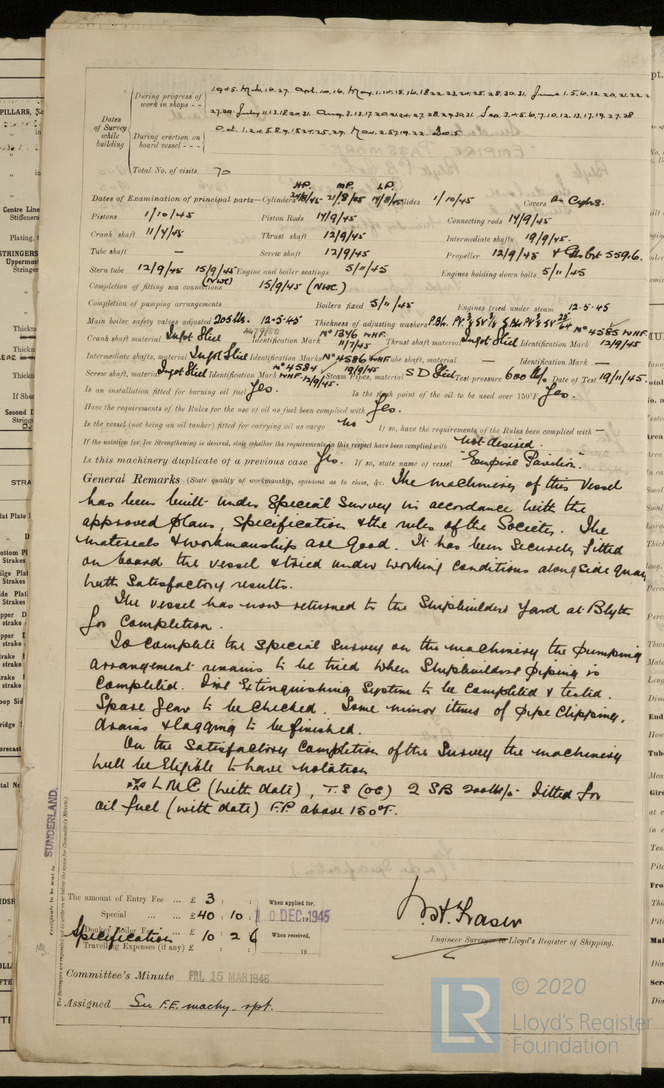 During progress of work in shops - - 1945. Mch. 16. 27. Apl. 10. 16. May. 1. 10. 15. 16. 18. 22. 23. 24. 25. 28. 30. 31. June 1. 5. 6. 12. 20. 21. 22.
27. 29. July 4. 12. 18. 20. 31. Aug. 3. 13. 17. 20. 21. 24. 27. 28. 29. 30. 31. Sep. 3. 4. 5. 6. 7. 10. 12. 13. 17. 19. 27. 28
Dates of Survey while building
During erection on board vessel - - - Oct. 1. 2. 4. 5. 8. 9. 15. 24. 25. 29. Nov. 2. 5. 7. 19. 22. Dec. 5.
Total No. of visits 70
H.P. M.P. L.P.
Dates of Examination of principal parts—Cylinders 21/8/45 Slides 1/10/45 Covers As Cyls.
Pistons 1/10/45 Piston Rods 14/9/45 Connecting rods 14/9/45
Crank shaft 11/7/45 Thrust shaft 12/9/45 Intermediate shafts 19/9/45.
Tube shaft — Screw shaft 12/9/45 Propeller 12/9/45
Stern tube 12/9/45 15/9/45 (NWC) Engine and boiler seatings 5/11/45 Engines holding down bolts 5/11/45
Completion of fitting sea connections 15/9/45 (NWC)
Completion of pumping arrangements Boilers fixed 5/11/45 Engines tried under steam 12.5.45
Main boiler safety valves adjusted 205 lbs. 12.5.45 Thickness of adjusting washers
Crank shaft material Ingot Steel Identification Mark No 1346 WHF. 11/7/45 Thrust shaft material Ingot Steel Identification Mark No 4585 WHF. 12/9/45
Intermediate shafts, material Ingot Steel Identification Marks No 4586 WHF 19/9/45 Tube shaft, material — Identification Mark —
Screw shaft, material Ingot Steel Identification Mark No 4584 WHF. 12/9/45. Steam Pipes, material S D Steel Test pressure 600 lbs/o Date of Test 19/11/45.
Is an installation fitted for burning oil fuel Yes. Is the flash point of the oil to be used over 150°F. Yes.
Have the requirements of the Rules for the use of oil as fuel been complied with Yes.
Is the vessel (not being an oil tanker) fitted for carrying oil as cargo No If so, have the requirements of the Rules been complied with —
If the notation for Ice Strengthening is desired, state whether the requirements in this respect have been complied with Not desired.
Is this machinery duplicate of a previous case Yes. If so, state name of vessel "Empire Pavilion".
General Remarks (State quality of workmanship, opinions as to class, &c. The machinery of this Vessel
has been built under Special Survey in accordance with the
approved plans, specification & the rules of the Society. The
materials & workmanship are good. It has been securely fitted
on board the vessel & tried under working conditions alongside quay
with satisfactory results.
The vessel has now returned to the Shipbuilders Yard at Blyth
for completion.
To complete the special survey on the machinery the pumping
arrangement remains to be tried when Shipbuilders piping is
completed. Fire Extinguishing System to be completed & tested.
Spare Gear to be checked. Some minor items of pipe clipping,
drains & lagging to be finished.
On the satisfactory completion of the Survey the machinery
will be eligible to have notation
LMC (with date), T.S (OG) 2 SB 200 lb/o. Fitted for
oil fuel (with date) F.P. above 150°F.
SUNDERLAND.
Certificate to be sent to
The amount of Entry Fee ... £ 3 : : When applied for,
Special ... ... £ 40 : 10 : 10 DEC 1945
Donkey Boiler Fee
Specification £ 10 : 2 6 When received,
Travelling Expenses (if any) £ : : 19
W. H. Fraser
Engineer Surveyor to Lloyd's Register of Shipping.
Committee's Minute FRI. 15 MAR 1946
Assigned See F.E. machy. rpt.
LR
© 2020
Lloyd's Register
Foundation